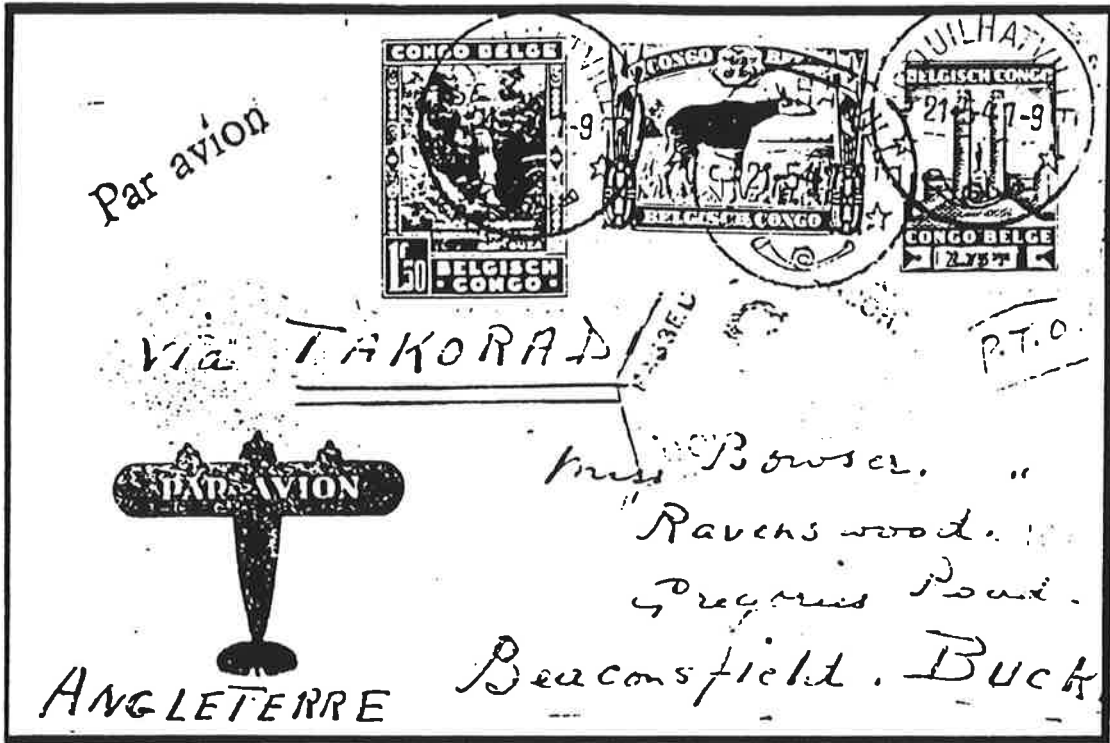 CONGO BELGE
1f50
BELGISCH
CONGO
CONGO BELGE
21-5-47
BELGISCH CONGO
QUILHATVILLE
BELGISCH CONGO
21-5-47-9
CONGO BELGE
Par avion
-9
Via TAKORAD
P.T.O.
PAR AVION
Miss Bowser.
"Ravenswood."
Gregories Road.
Beaconsfield. BUCK
ANGLETERRE